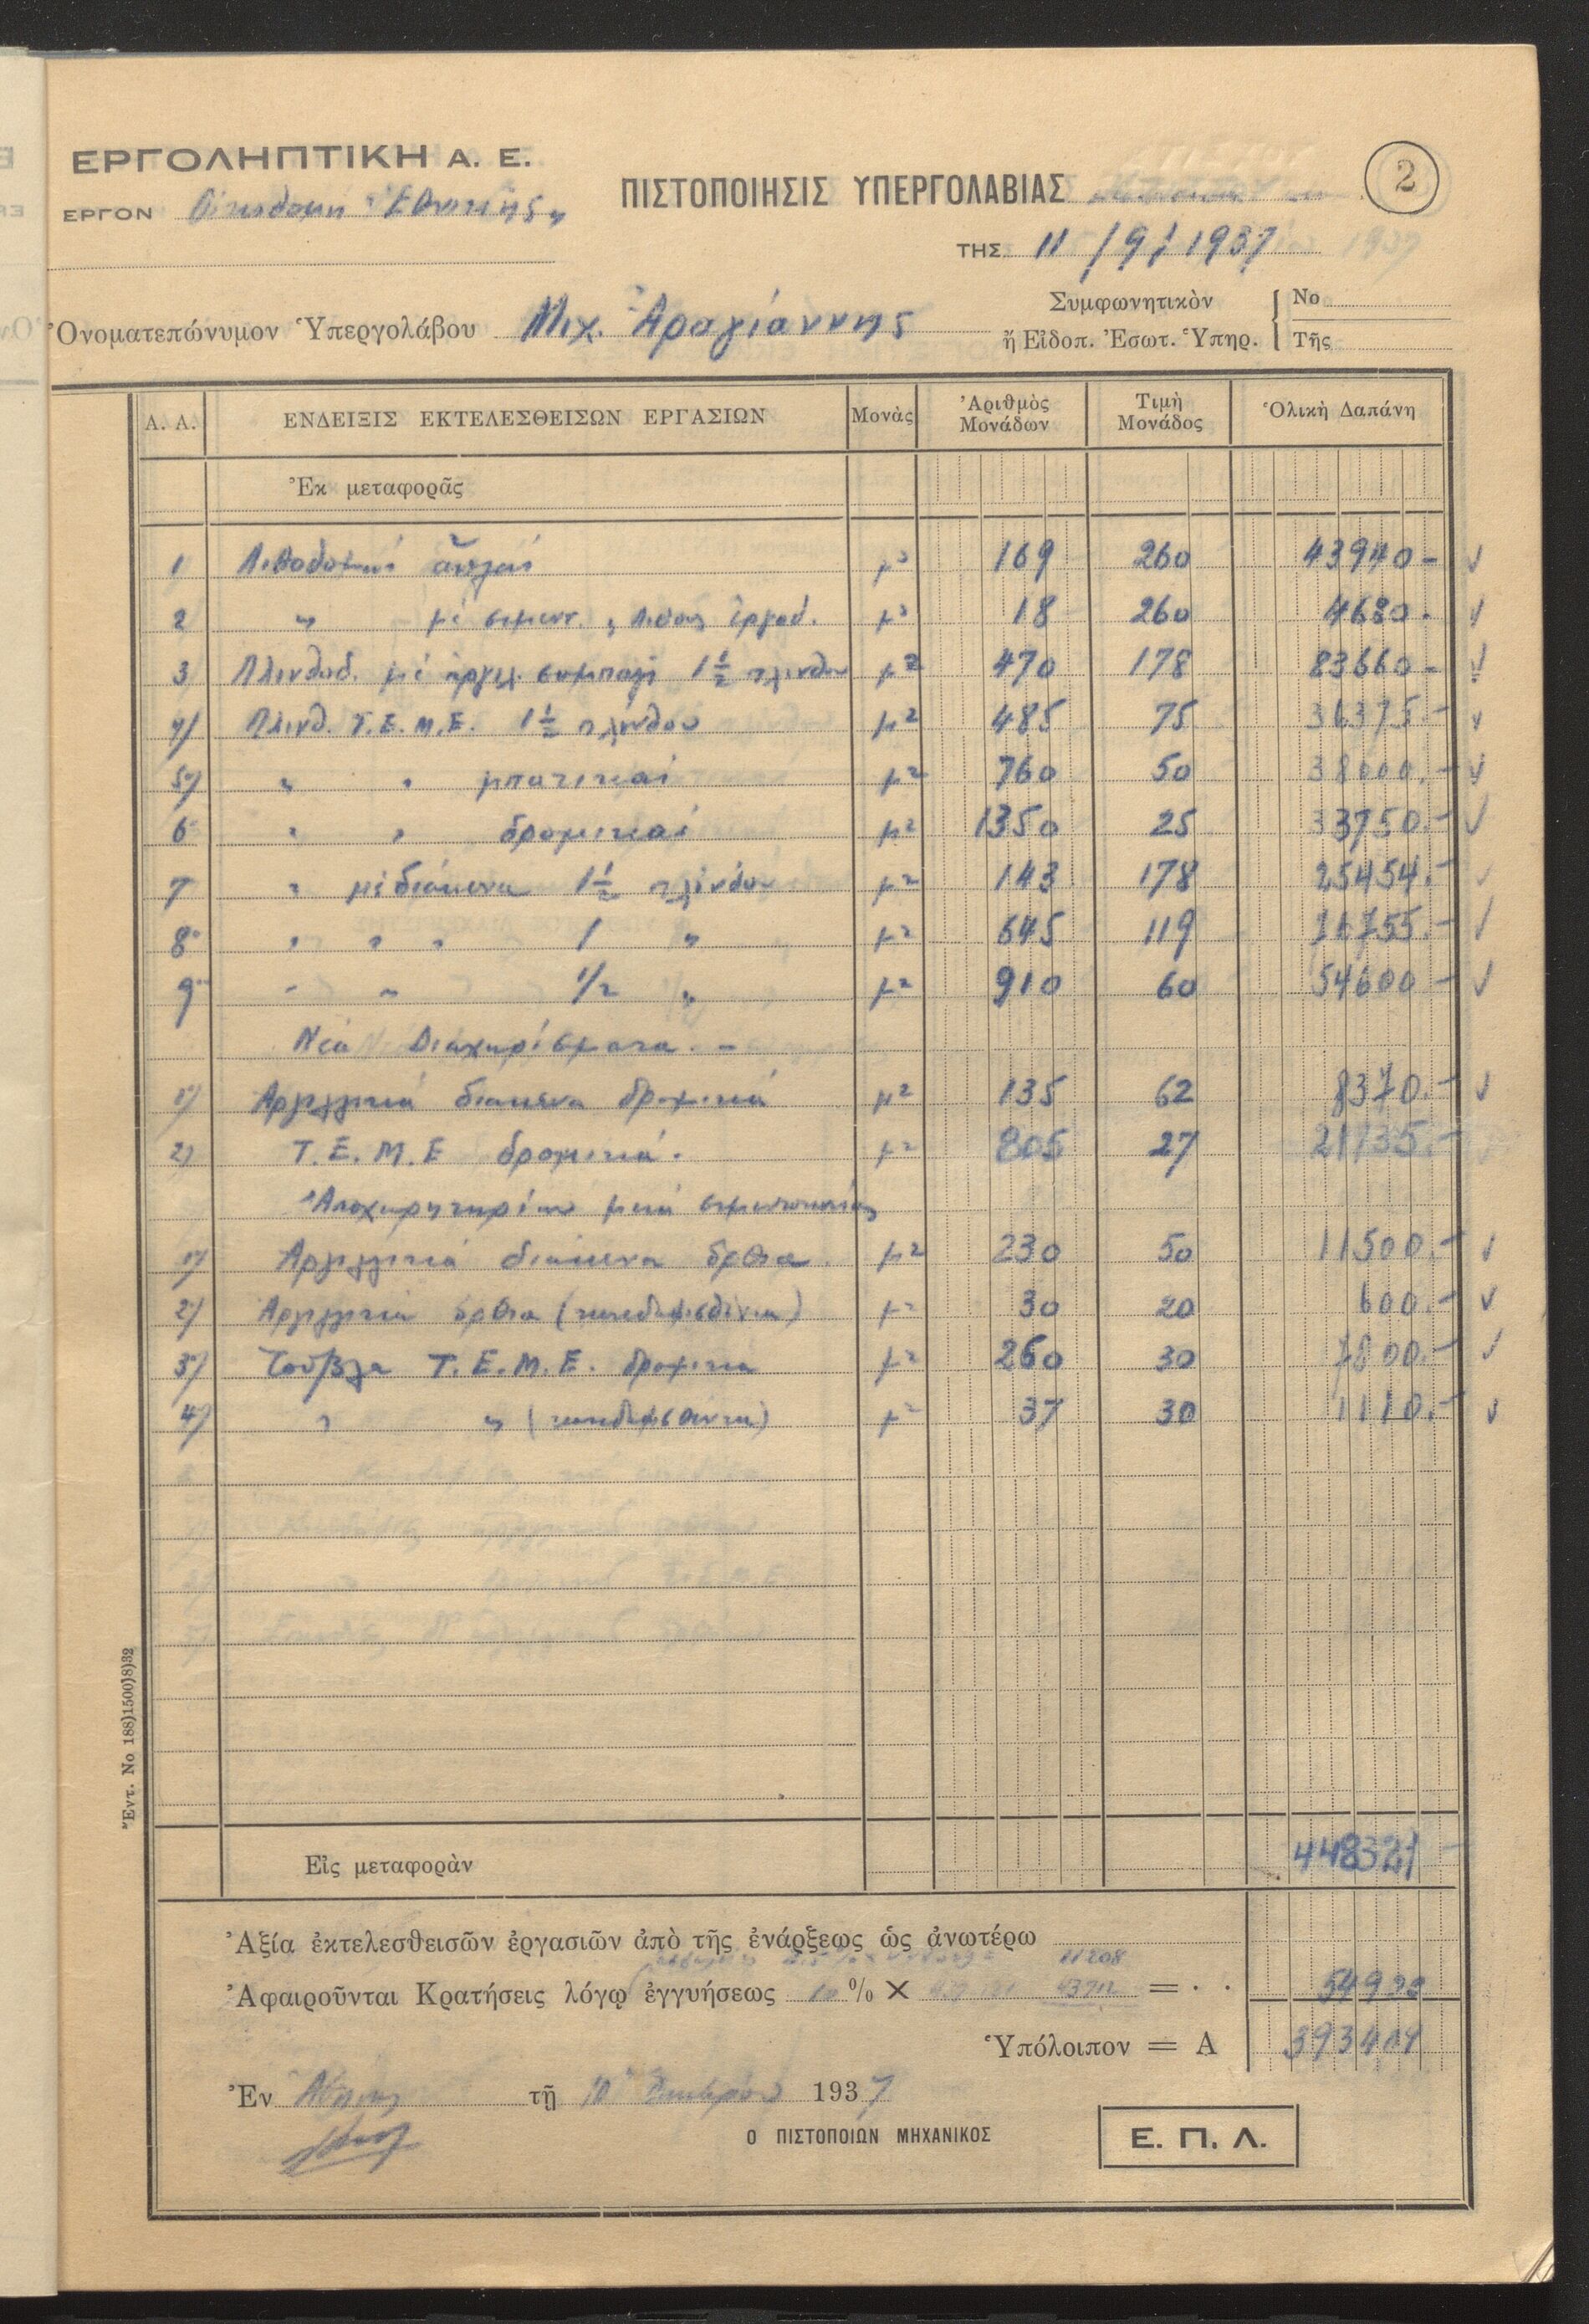 ΕΡΓΟΛΗΠΤΙΚΗ Α. Ε.
ΕΡΓΟΝ Οἰκοδομὴ "Ἐθνικῆς"
ΠΙΣΤΟΠΟΙΗΣΙΣ ΥΠΕΡΓΟΛΑΒΙΑΣ
2
ΤΗΣ 11/9/1937
Ὀνοματεπώνυμον Ὑπεργολάβου Μιχ. Ἀραγιάννης
Συμφωνητικὸν
ἤ Εἰδοπ. Ἐσωτ. Ὑπηρ.
No
Τῆς
Α. Α. ΕΝΔΕΙΞΙΣ ΕΚΤΕΛΕΣΘΕΙΣΩΝ ΕΡΓΑΣΙΩΝ Μονὰς Ἀριθμὸς Μονάδων Τιμὴ Μονάδος Ὁλικὴ Δαπάνη
Ἐκ μεταφορᾶς
1 Λιθοδομαί ἁπλαί μ3 169 260 43940-
2 " μέ σιμεντ. μ3 18 260 4680.
3 Πλινθοδ. μέ ἀργιλ. συμπαγῆ 1 1/2 πλίνθου μ2 470 178 83660-
4) Πλινθ. Τ.Ε.Μ.Ε. 1 1/2 πλίνθου μ2 485 75 36375.-
5) " " μπατικαί μ2 760 50 38000.-
6 " " δρομικαί μ2 1350 25 33750.-
7 " μέ διάκενα 1 1/2 πλίνθου μ2 143 178 25454.-
8 " " " 1 " μ2 645 119 76755.-
9 " " 1/2 " μ2 910 60 54600-
Νέα Διαχωρίσματα.-
1) Αργιλλικά διακενα δρομικά μ2 135 62 8370.-
2) Τ.Ε.Μ.Ε δρομικά. μ2 805 27 21735.-
Ἀποχωρητηρίων μετά
1) Αργιλλικά διάκενα ὄρθια. μ2 230 50 11500.-
2) Αργιλλικά ὄρθια (κατεδαφισθέντα) μ2 30 20 600.-
3) Τοῦβλα Τ.Ε.Μ.Ε. δρομικα μ2 260 30 7800.-
4) " " (κατεδαφισθέντα) μ2 37 30 1110.-
Εἰς μεταφορὰν 448321
Ἀξία ἐκτελεσθεισῶν ἐργασιῶν ἀπὸ τῆς ἐνάρξεως ὡς ἀνωτέρω
11208
Ἀφαιροῦνται Κρατήσεις λόγῳ ἐγγυήσεως 10 % × 43712 = . . 54920
Ὑπόλοιπον = Α 393401
Ἐν Ἀθήναις τῇ 10 1937
Ο ΠΙΣΤΟΠΟΙΩΝ ΜΗΧΑΝΙΚΟΣ
Ε. Π. Λ.
Ἔντ. No 188)1500)8)32